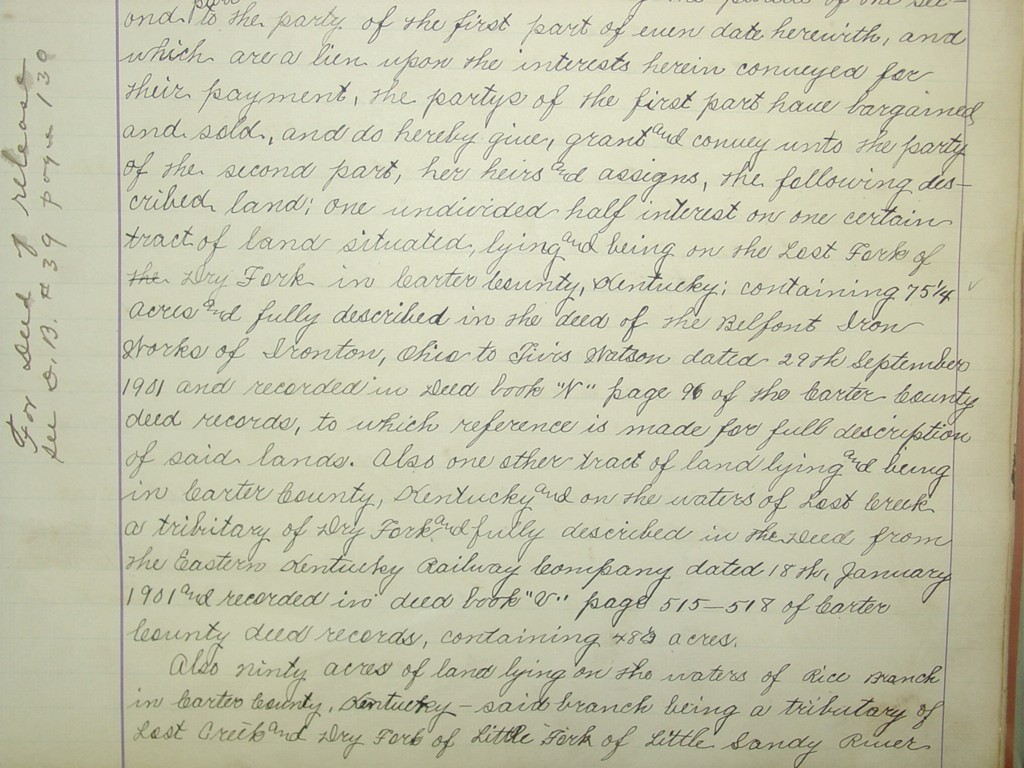 ond part to the party of the first part of even date herewith, and
which are a lien upon the interests herein conveyed for
their payment, the partys of the first part have bargained
and sold, and do hereby give, grant and convey unto the party
of the second part, her heirs and assigns, the following des-
cribed land; one undivided half interest on one certain
tract of land situated, lying and being on the Lost Fork of
the Dry Fork in Carter County, Kentucky; containing 75 1/4
acres and fully described in the deed of the Belfont Iron
Works of Ironton, Ohio to Tivis Watson dated 29th September
1901 and recorded in Deed book "N" page 96 of the Carter County
deed records, to which reference is made for full description
of said lands. Also one other tract of land lying and being
in Carter County, Kentucky and on the waters of Lost Creek
a tributary of Dry Fork and fully described in the Deed from
the Eastern Kentucky Railway Company dated 18th, January
1901 and recorded in deed book "V" page 515-518 of Carter
County deed records, containing acres.
Also ninety acres of land lying on the waters of Rice Branch
in Carter County, Kentucky - said branch being a tributary of
Lost Creek and Dry Fork of Little Fork of Little Sandy River
For Deed of release
see D. B. # 39 page 139